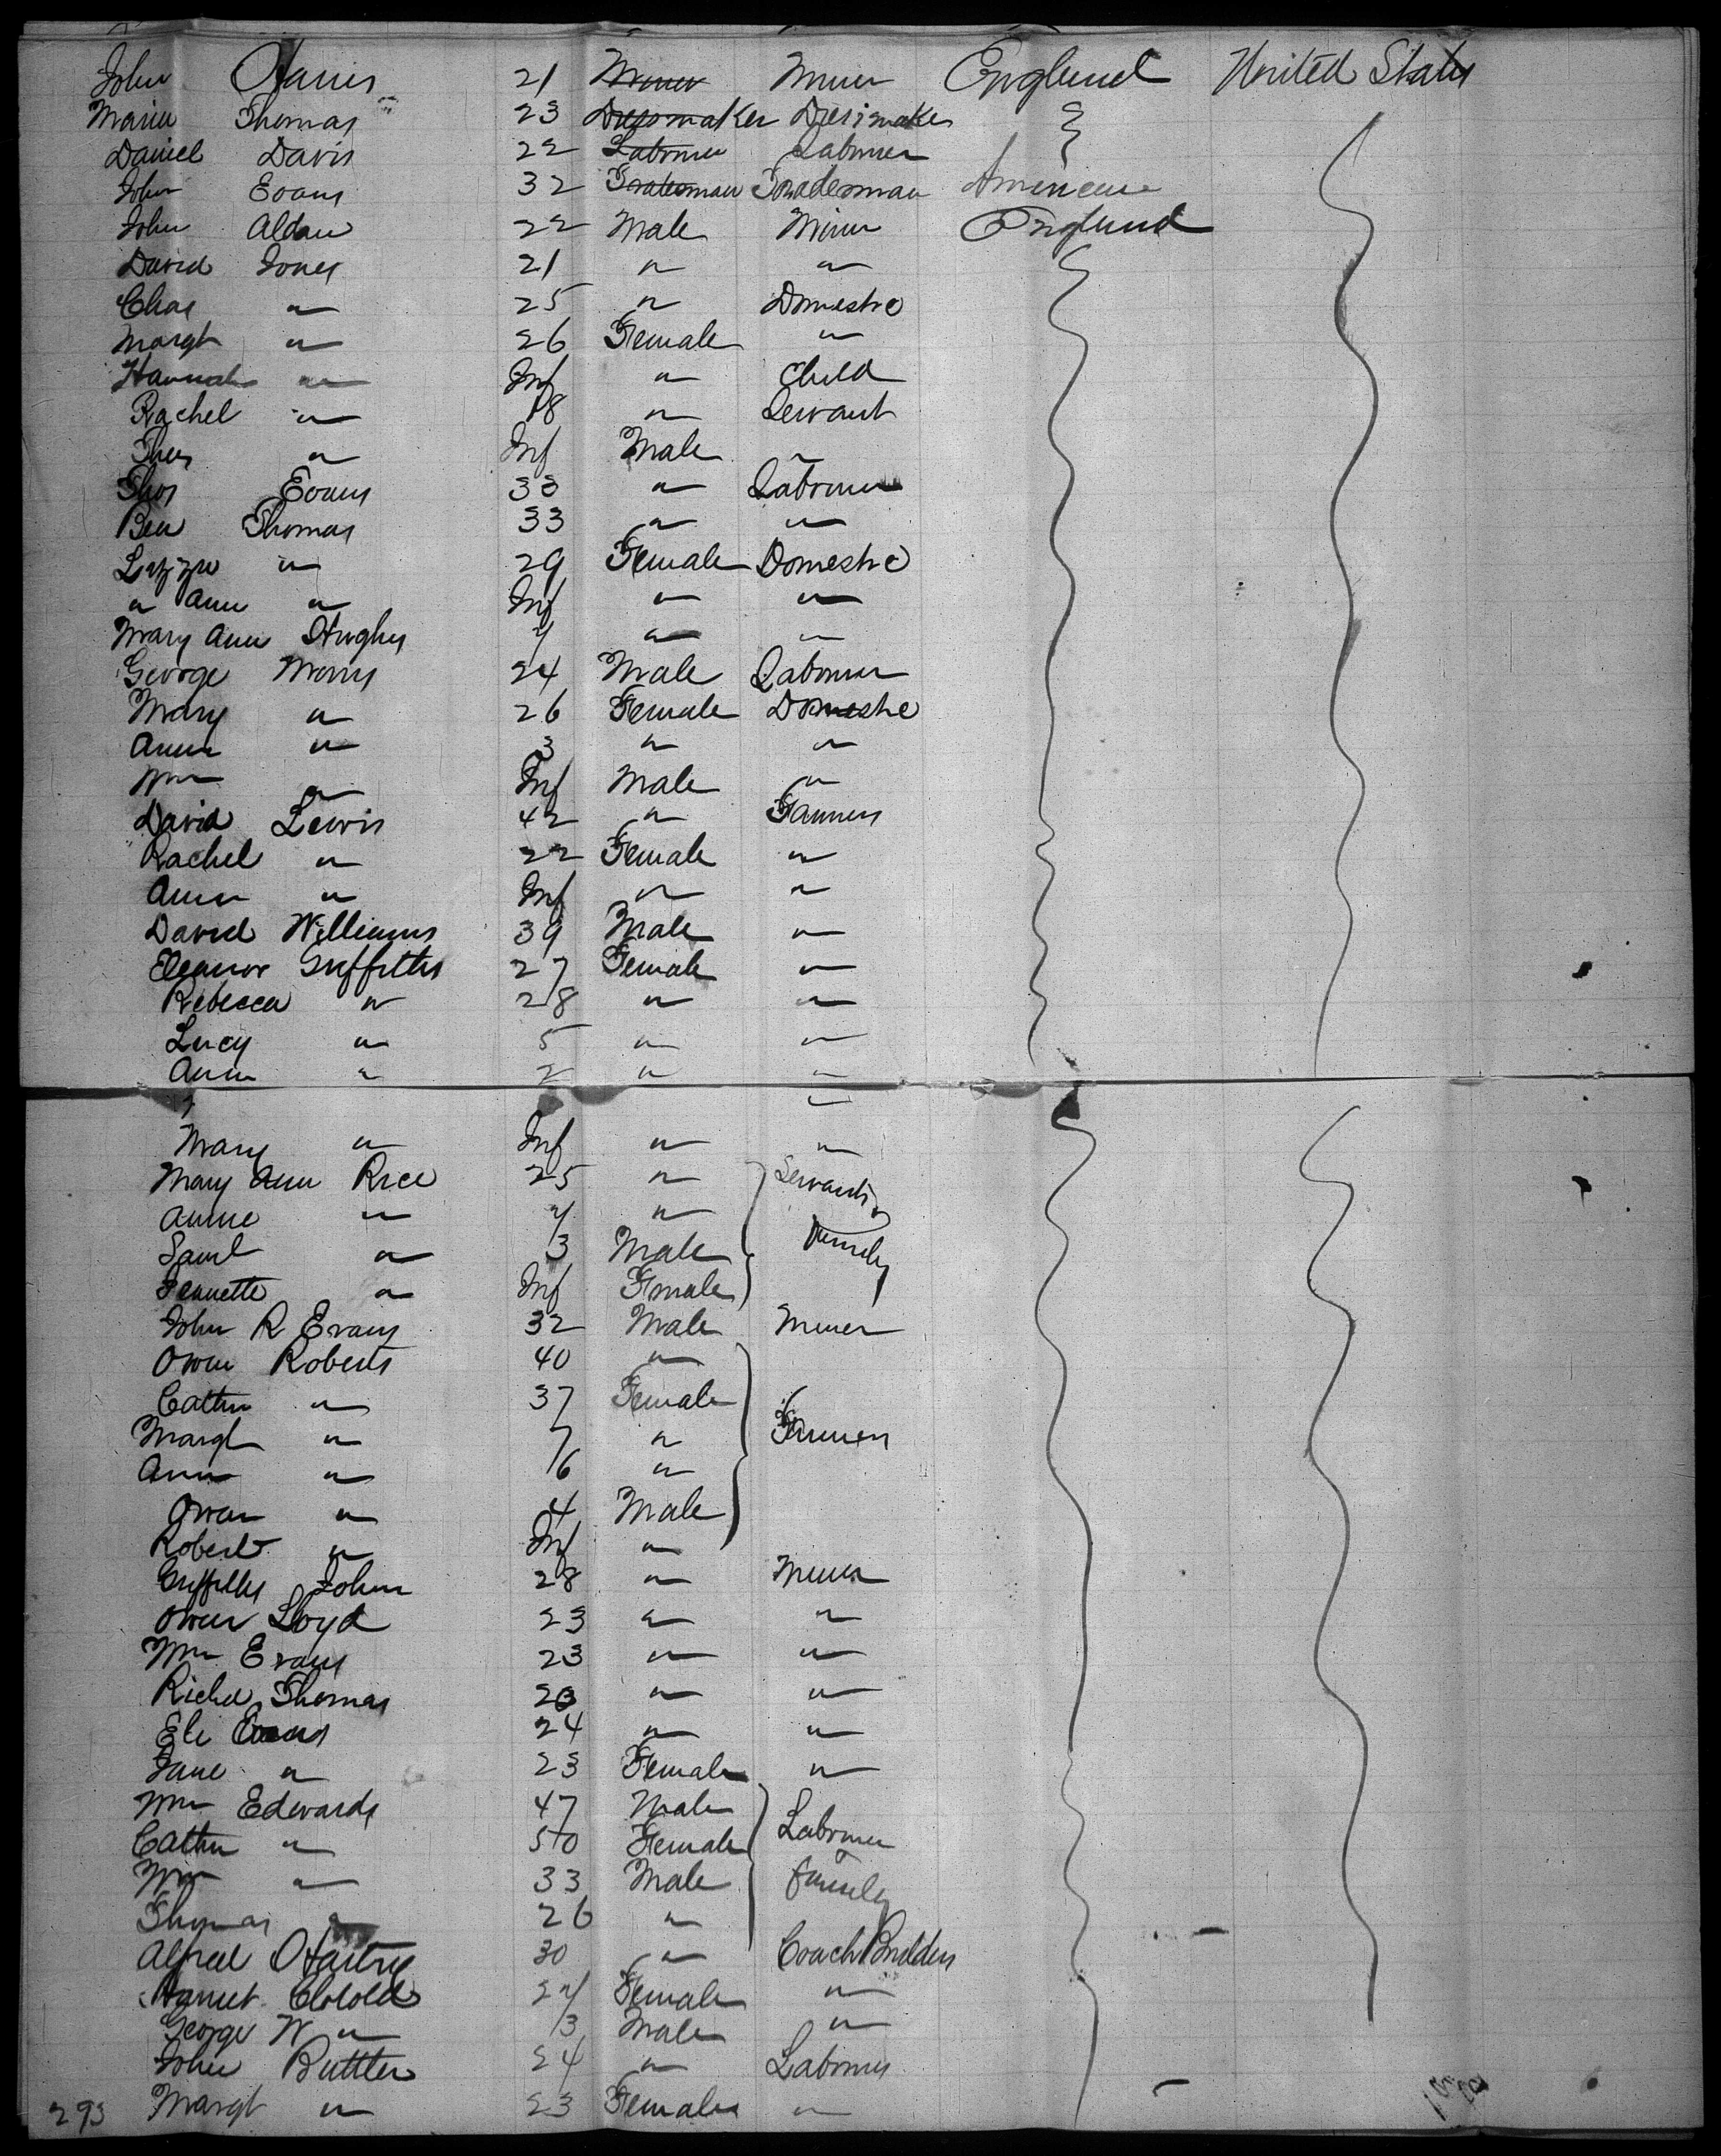 John Harris 21 Miner Miner England United States
Maria Thomas 23 Dressmaker Dressmaker
Daniel Davis 22 Labourer Labourer
John Evans 32 Tradesman Tradesman American
John Aldan 22 Male Miner England
David Jones 21 " "
Chas " 25 " Domestic
Margt " 26 Female "
Hannah " Inf " Child
Rachel " 18 " Servant
Thos " Inf Male "
Thos Evans 33 " Labourer
Ben Thomas 33 " "
Lizzie " 29 Female Domestic
" Ann " Inf " "
Mary Ann Hughes " "
George Morris 24 Male Labourer
Mary " 26 Female Domestic
Ann " 3 " "
Wm " Inf Male "
David Lewis 42 " Farmers
Rachel " 22 Female "
Ann " Inf " "
David Williams 39 Male "
Eleanor Griffiths 27 Female "
Rebecca " 28 " "
Lucy " 5 " "
Ann " 2 " "
"
Mary " Inf " "
Mary Ann Rice 25 " Servants
Annie " "
Saml " 3 Male Family
Jennette " Inf Female
John R Evans 32 Male Miner
Owen Roberts 40 "
Cathn " 37 Female
Margt " 7 " Farmers
Ann " 6 "
Owen " 4 Male
Robert " Inf "
Griffiths John 28 " Miner
Owen Lloyd 23 " "
Wm Evans 23 " "
Richd Thomas " "
Eli Evans 24 " "
Jane " 23 Female "
Wm Edwards 47 Male
Cathn " 50 Female Labourer
Wm " 33 Male Family
Thomas " 26 "
Alfred 30 " Coach Builders
Harriet Female "
George W " 3 Male "
John Buttler 24 " Labourers
293 Margt " 23 Female "